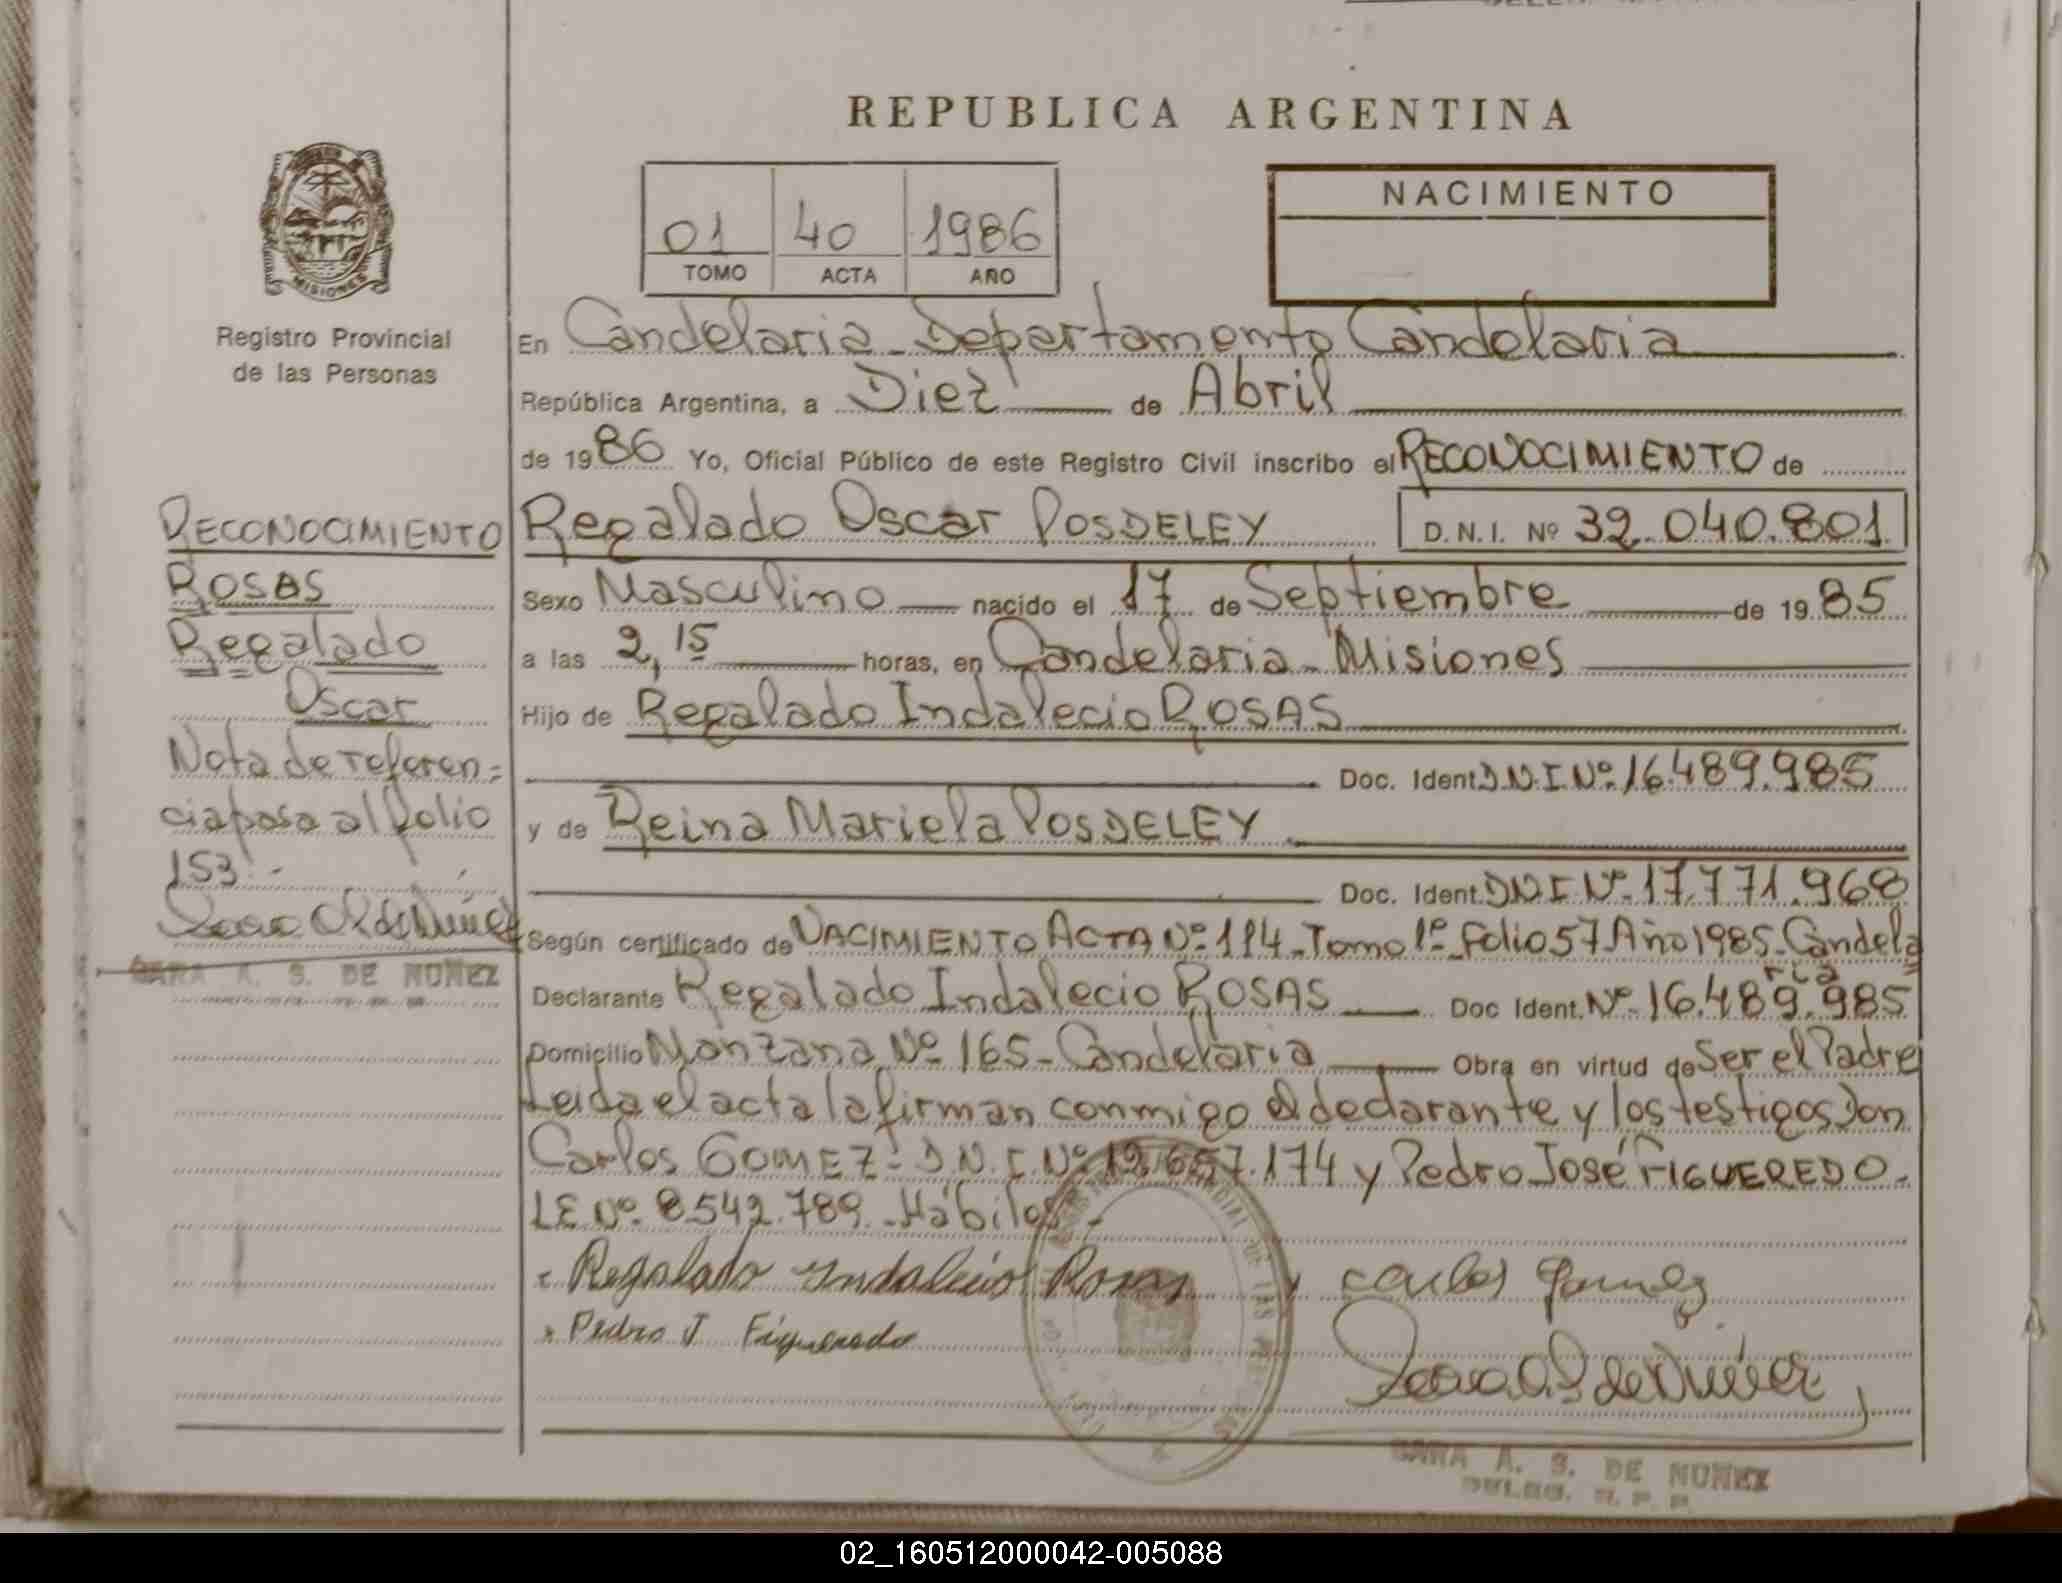 REPUBLICA ARGENTINA
MISIONES
Registro Provincial
de las Personas
01 40 1986
TOMO ACTA AÑO
NACIMIENTO
En Candelaria - Departamento Candelaria
República Argentina, a Diez de Abril
de 1986 Yo, Oficial Público de este Registro Civil inscribo el RECONOCIMIENTO de
Regalado Oscar POSDELEY D.N.I. Nº 32.040.801
Sexo Masculino nacido el 17 de Septiembre de 1985
a las 2,15 horas, en Candelaria - Misiones
Hijo de Regalado Indalecio ROSAS
Doc. Ident. D.N.I. Nº 16.489.985
y de Reina Mariela POSDELEY
Doc. Ident. DNI Nº 17.771.968
Según certificado de NACIMIENTO ACTA Nº 114 - Tomo 1º - Folio 57 Año 1985 - Candela
ria
Declarante Regalado Indalecio ROSAS Doc Ident. Nº 16.489.985
Domicilio Manzana Nº 165 - Candelaria Obra en virtud de Ser el Padre
Leida el acta la firman conmigo el declarante y los testigos Don
Carlos GOMEZ - D.N.I. Nº 12.657.174 y Pedro José FIGUEREDO -
LE Nº 8.542.789 - Hábiles -
Regalado Indalecio Rosas Carlos Gomez
Pedro J Figueredo
A. S. DE NUÑEZ
RECONOCIMIENTO
ROSAS
Regalado
Oscar
Nota de referen=
cia pasa al folio
153 -
A. S. DE NUÑEZ
02_160512000042-005088